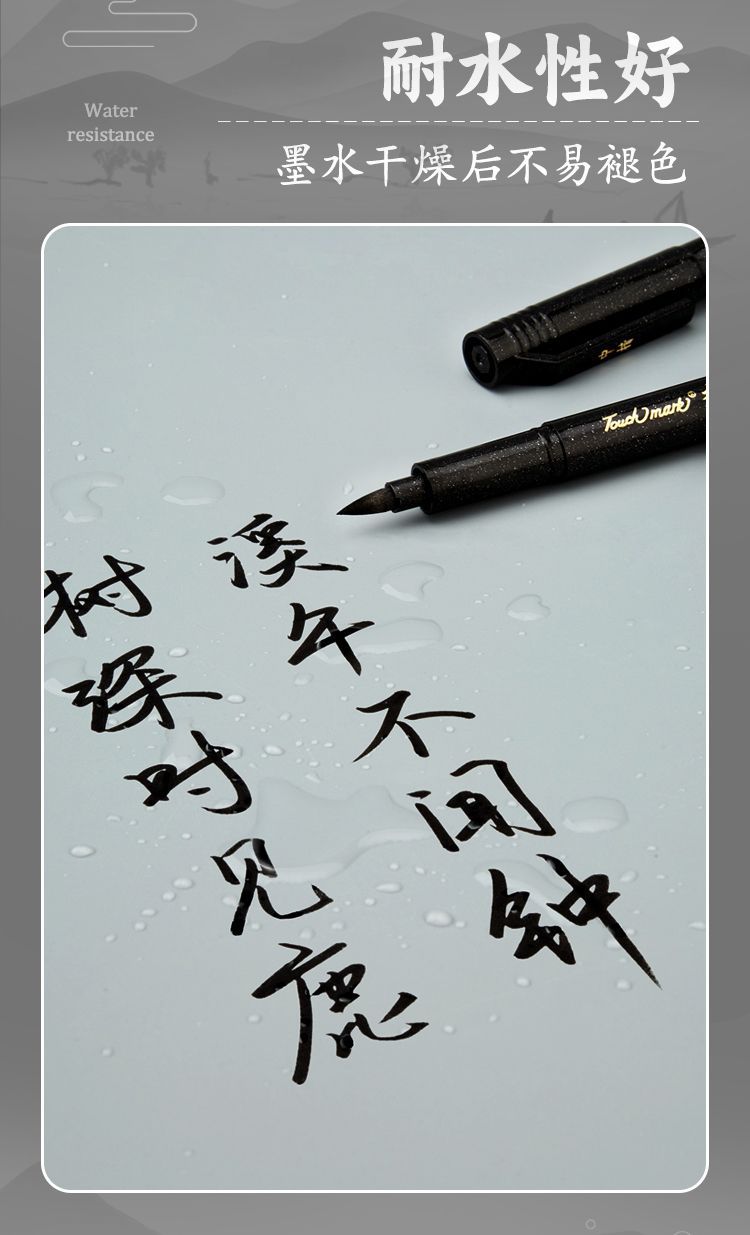 耐水性好
Water
resistance
墨水干燥后不易褪色
中楷
Touch mark
树深时见鹿
溪午不闻钟